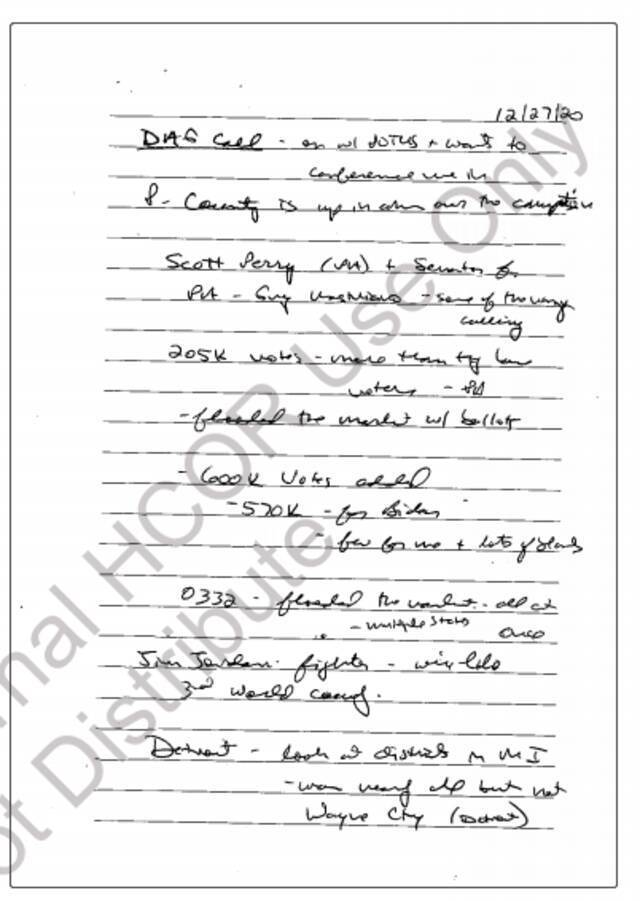 12/27/20
DAG Call - on w/ POTUS + wants to
conference me in
P - Country is up in arms over the corruption
Scott Perry (PA) + Senator for
PA - Guy - some of the
calling
205K votes - more than they have
voters - PA
- flooded the market w/ ballots
- 600K Votes added
- 570K - for Biden
- few for me + lots of
0332 - flooded the market - all at
- multiple states once
Jim Jordan: fighter -
3rd world country.
Detroit - look at districts in MI
- won nearly all but not
Wayne Cty (Detroit)
Internal HCOR Use Only
Not Distribute